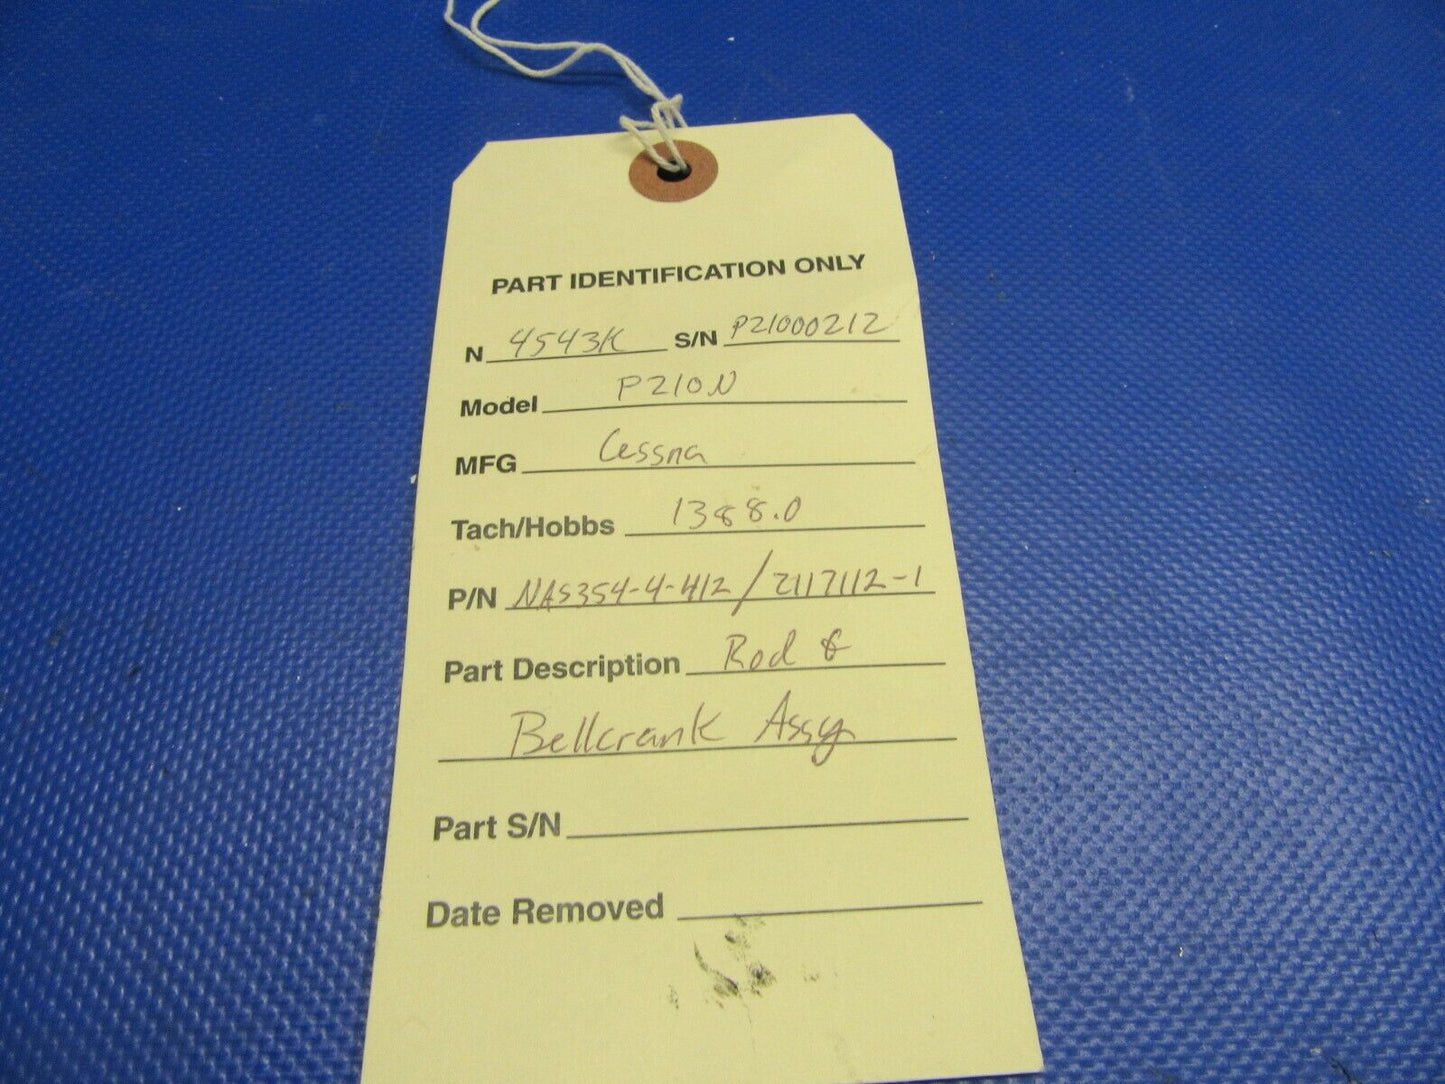 PART IDENTIFICATION ONLY
N 4543K S/N P21000212
Model P210N
MFG Cessna
Tach/Hobbs 1388.0
P/N NAS354-4-412/2117112-1
Part Description Rod &
Bellcrank Assy
Part S/N
Date Removed